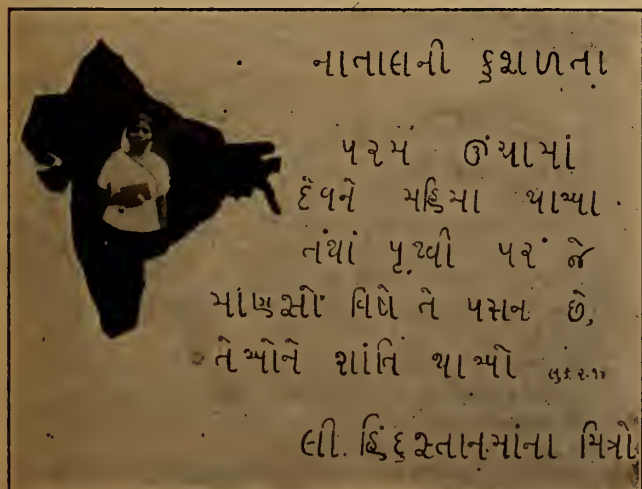 નાતાલની કુશળતા
પરમ ઊંચામાં
દેવને મહિમા થાઓ
તથા પૃથ્વી પર જે
માણસો વિષે તે પસન છે,
તેઓને શાંતિ થાઓ લુક ૨.૧૪
લી. હિંદુસ્તાનમાંના મિત્રો